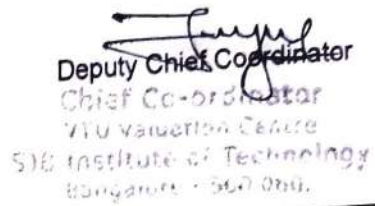 Deputy Chief Coordinator
Chief Co-ordinator
VTU Valuation Centre
Institute of Technology
Bangalore - 560 060.